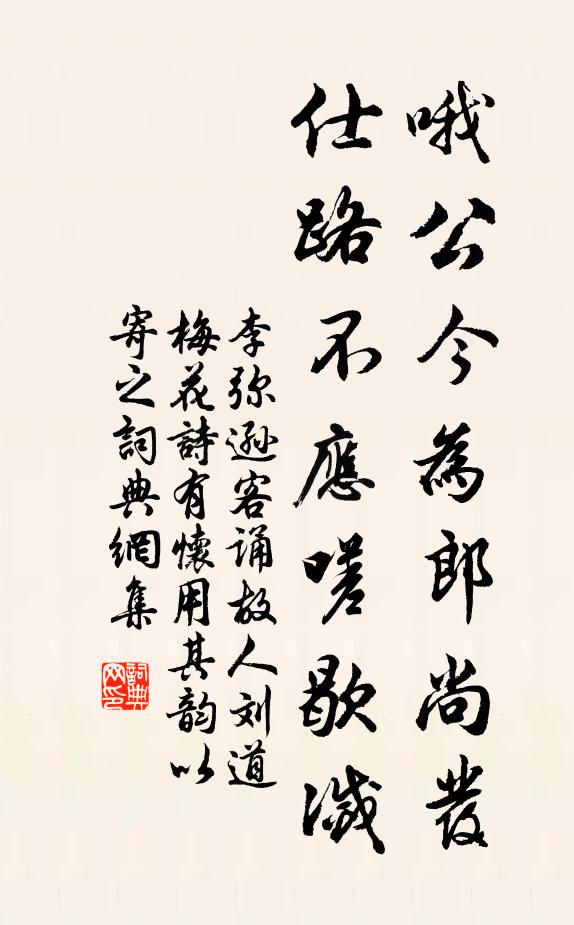 哦公今為郎尚發
仕路不應嗟歇滅
李弥遜客誦故人刘道
梅花詩有懷用其韵以
寄之詞典網集
詞典
网印